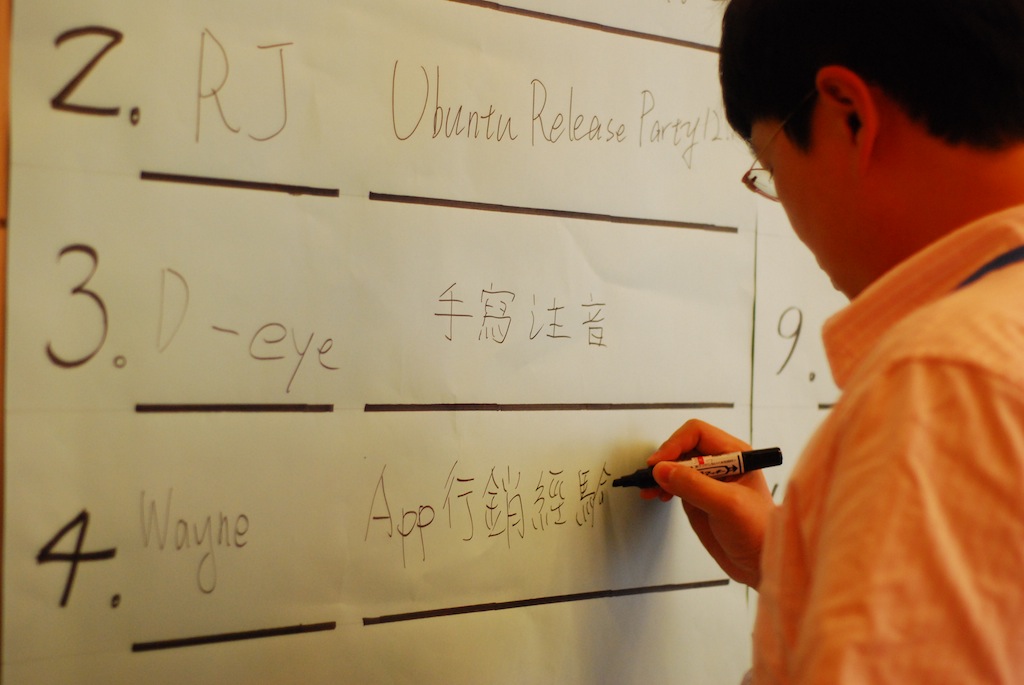 2. RJ Ubuntu Release Party 12.
3. D-eye 手寫注音
4. Wayne App行銷經驗
9.